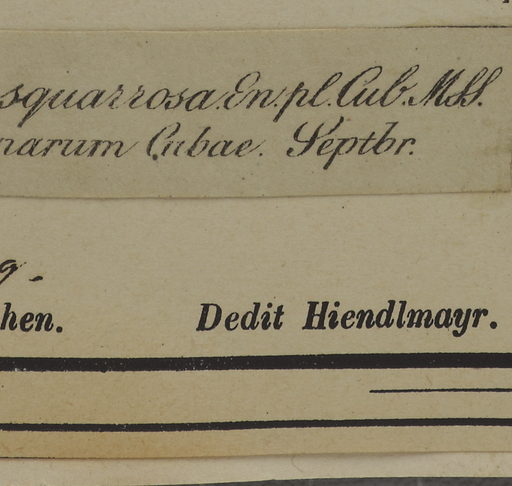 squarrosa. En. pl. Cub. MSS.
narum Cubae. Septbr.
g.
hen. Dedit Hiendlmayr.